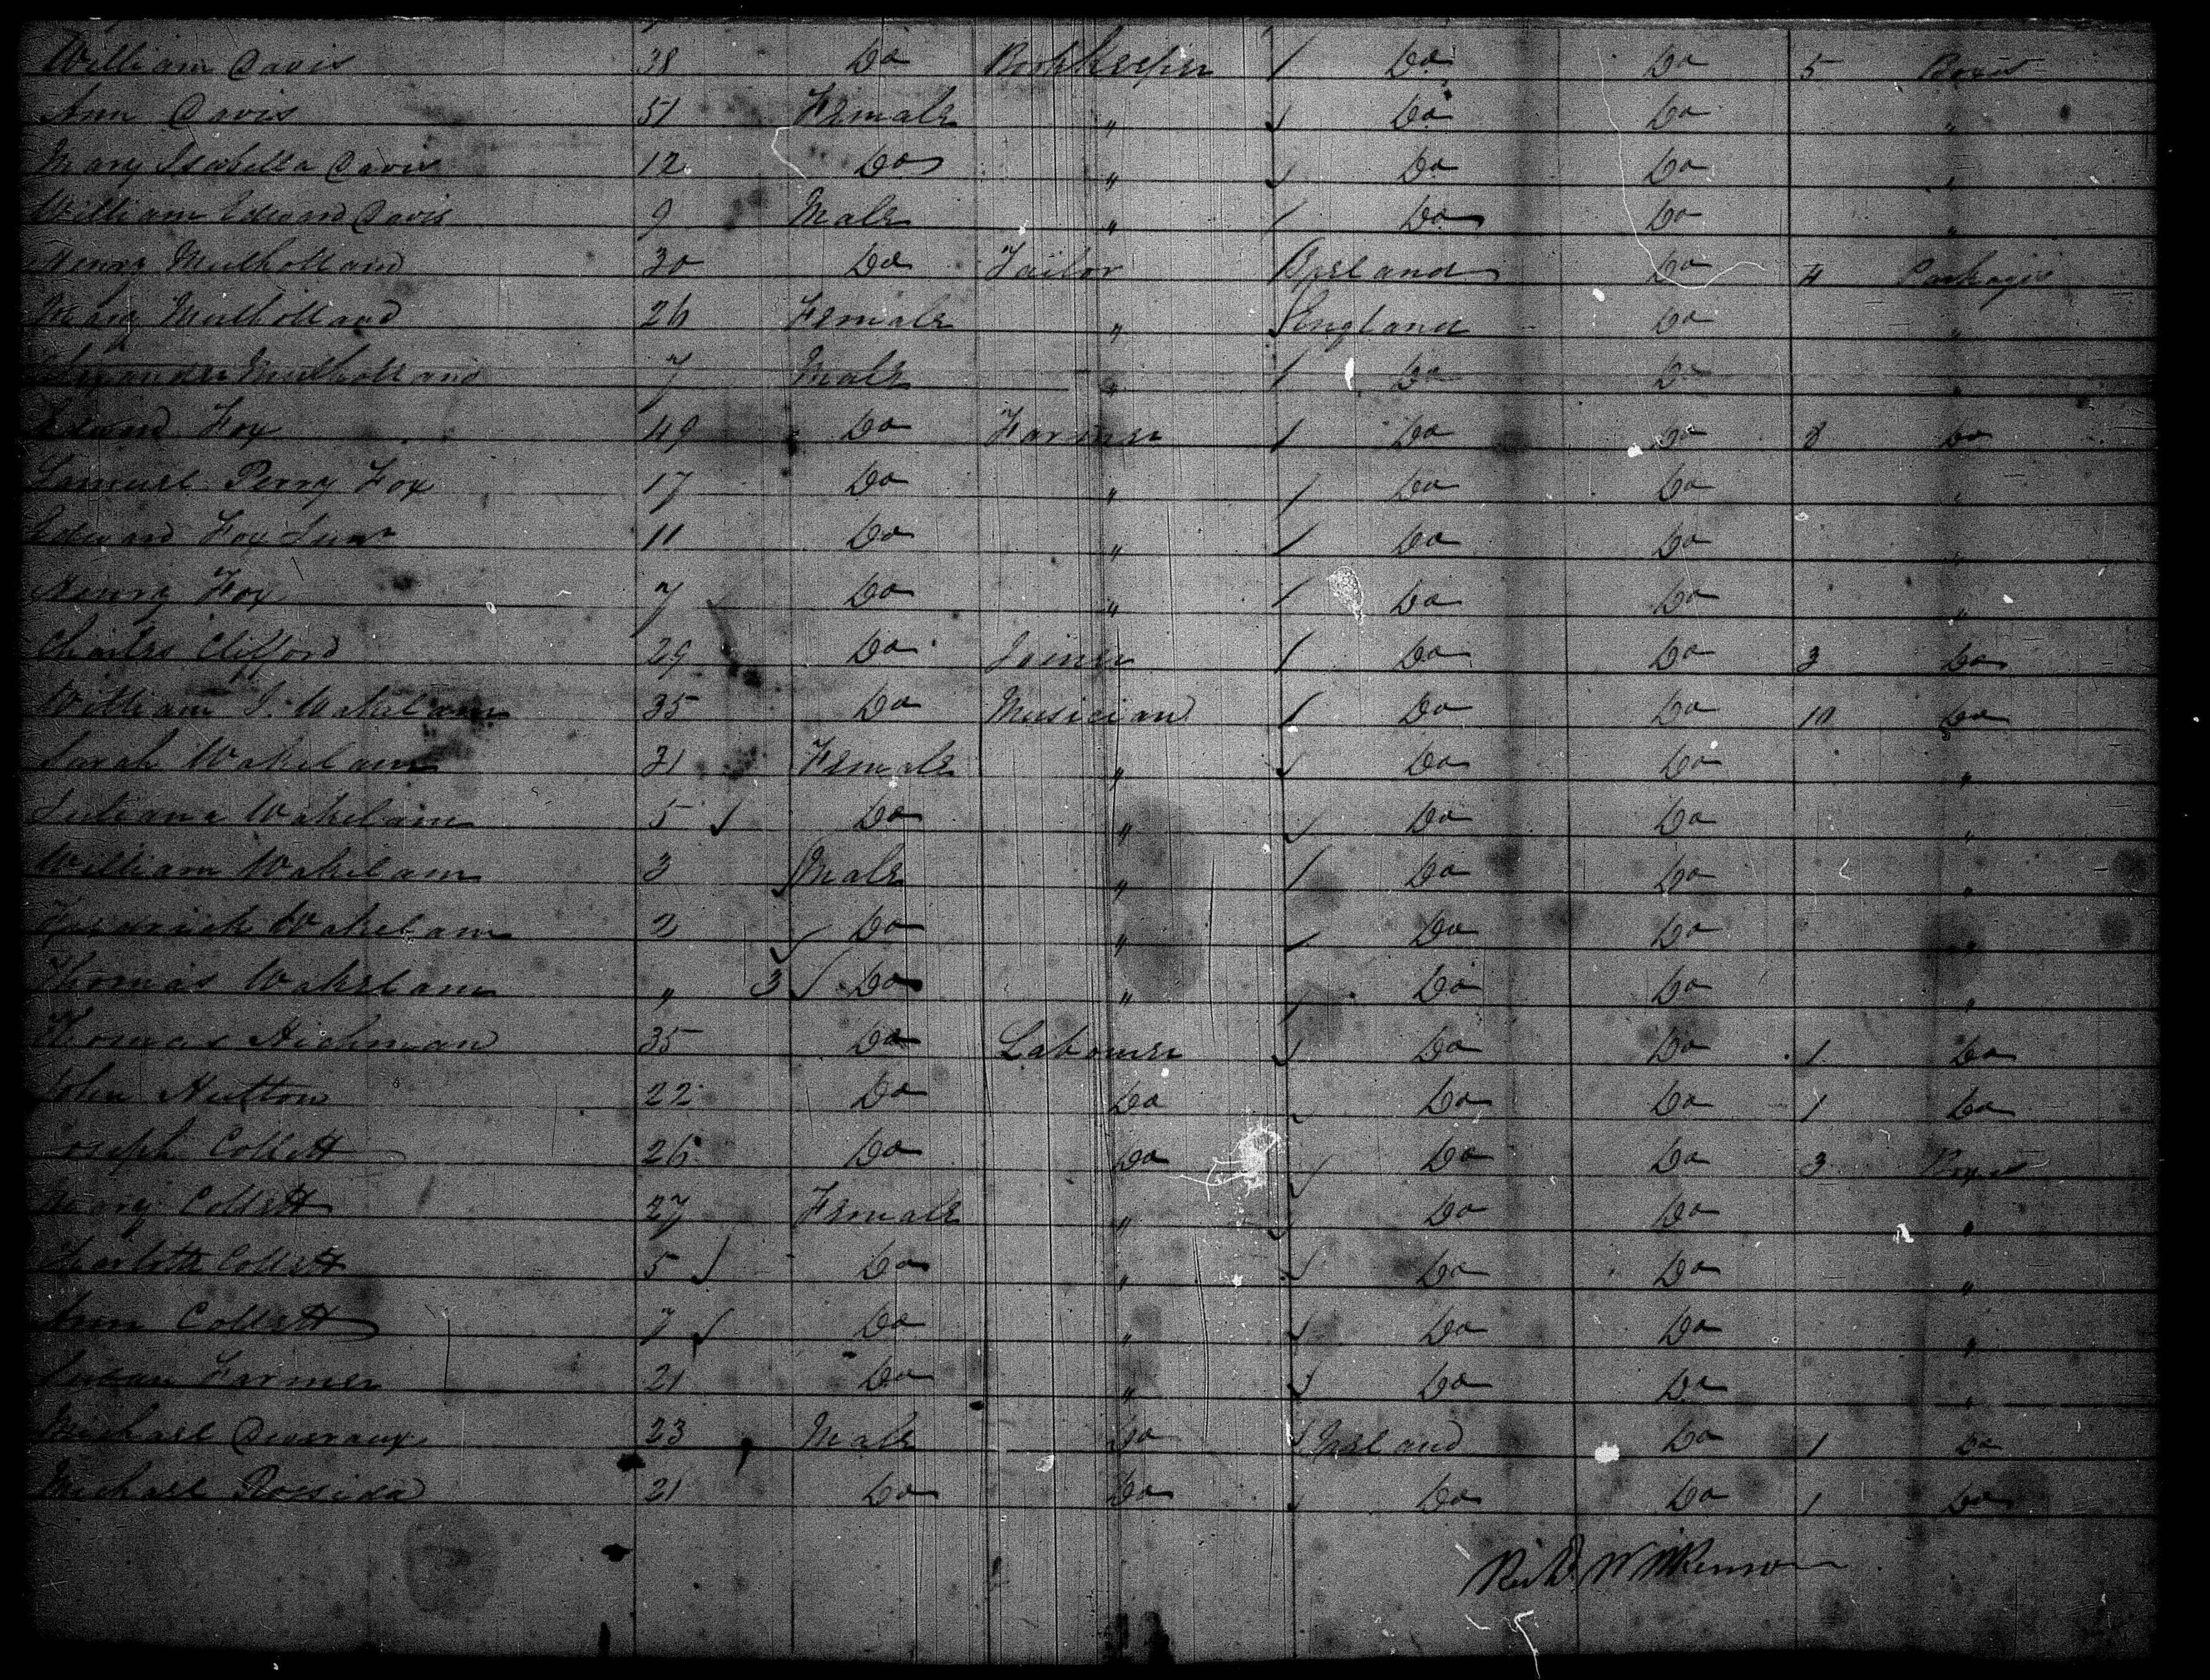 William Davis 38 Do Bookkeeper / Do Do 5 Boxes
Ann Davis 51 Female " Do Do "
Mary Isabella Davis 12 Do " Do Do "
William Edward Davis 9 Male " / Do Do "
Henry Mulholland 30 Do Tailor Ireland Do 4 Packages
Mulholland 26 Female " England Do "
Alexander Mulholland 7 Male " / Do Do "
Edward Fox 49 Do Farmer / Do Do 8 Do
Samuel Perry Fox 17 Do " / Do Do "
Edward Fox Junr 11 Do " / Do Do "
Henry Fox 7 Do " / Do Do "
Charles Clifford 29 Do Joiner / Do Do 3 Do
William J. Wakelam 35 Do Musician / Do Do 10 Do
Sarah Wakelam 31 Female " Do Do "
Juliana Wakelam 5 Do " Do Do "
William Wakelam 3 Male " / Do Do "
Fredrick Wakelam 2 Do " Do Do "
Thomas Wakelam " 3 Do " Do Do "
Thomas Hickman 35 Do Labourer Do Do 1 Do
John Hutton 22 Do Do Do Do 1 Do
Joseph Collett 26 Do Do Do Do 3 Boxes
Mary Collett 27 Female " Do Do "
Charlotte Collett 5 Do " Do Do "
Ann Collett 7 Do " Do Do "
Susan Farmer 21 Do " Do Do "
Michael Deveraux 23 Male Do Ireland Do 1 Do
Michael 21 Do Do Do Do 1 Do
Richd Wilkinson